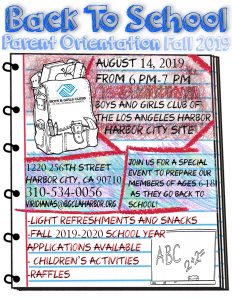 Back To School
Parent Orientation Fall 2019
AUGUST 14, 2019
FROM 6 PM-7 PM
BOYS AND GIRLS CLUB OF
THE LOS ANGELES HARBOR
HARBOR CITY SITE
BOYS & GIRLS CLUBS
1220 256TH STREET
HARBOR CITY, CA 90710
310-534-0056
VIRIDIANAS@BGCLAHARBOR.ORG
JOIN US FOR A SPECIAL
EVENT TO PREPARE OUR
MEMBERS OF AGES 6-18
AS THEY GO BACK TO
SCHOOL!
-LIGHT REFRESHMENTS AND SNACKS
-FALL 2019-2020 SCHOOL YEAR
APPLICATIONS AVAILABLE
- CHILDREN'S ACTIVITIES
-RAFFLES
ABC